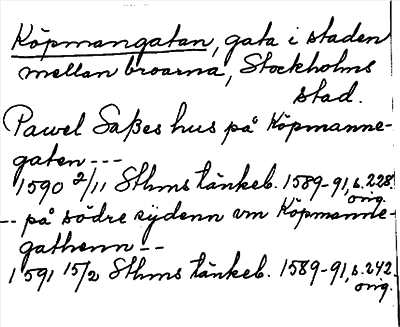 Köpmangatan, gata i staden
mellan broarna, Stockholms
stad.
Pawel Saßes hus på Köpmanne-
gaten ---
1590 2/11 Sthms tänkeb. 1589-91, s. 228
orig.
-- på södre sydenn vm Köpmanne-
gathenn --
1591 15/2 Sthms tänkeb. 1589-91, s. 242
orig.